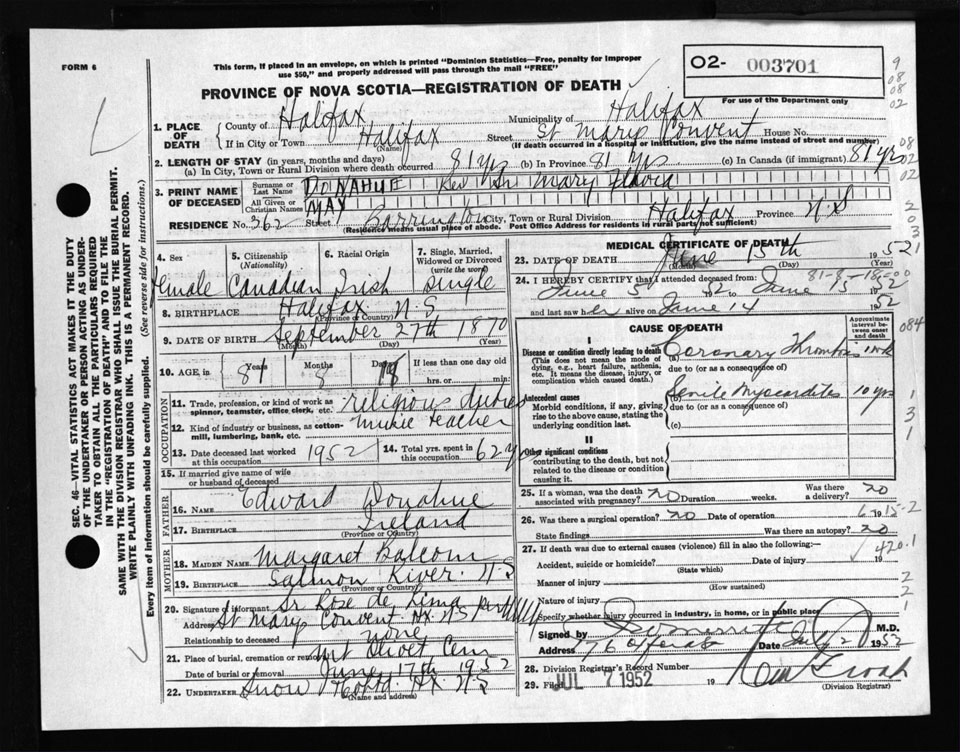 FORM 6
This form, if placed in an envelope, on which is printed "Dominion Statistics—Free, penalty for improper
use $50," and properly addressed will pass through the mail "FREE"
02- 003701
For use of the Department only
PROVINCE OF NOVA SCOTIA—REGISTRATION OF DEATH
1. PLACE OF DEATH
County of Halifax Municipality of Halifax
If in City or Town Halifax (Name) Street St Marys Convent House No.
(If death occurred in a hospital or institution, give the name instead of street and number)
2. LENGTH OF STAY (in years, months and days)
(a) In City, Town or Rural Division where death occurred 81 yrs (b) In Province 81 yrs (c) In Canada (if immigrant) 81 yrs
3. PRINT NAME OF DECEASED
Surname or Last Name DONAHUE Rev Sr Mary Flavia
All Given or Christian Names MAY
RESIDENCE No. 262 Street Barrington City, Town or Rural Division Halifax Province N.S
(Residence means usual place of abode. Post Office Address for residents in rural parts not sufficient)
4. Sex Female
5. Citizenship (Nationality) Canadian
6. Racial Origin Irish
7. Single, Married, Widowed or Divorced (write the word) Single
8. BIRTHPLACE Halifax N-S
(Province or Country)
9. DATE OF BIRTH September 27th 1870
(Month) (Day) (Year)
10. AGE in Years 81 Months 8 Days 18 If less than one day old
hrs. or min.
OCCUPATION
11. Trade, profession or kind of work as spinner, teamster, office clerk, etc. religious duties
12. Kind of industry or business, as cotton-mill, lumbering, bank, etc. music teacher
13. Date deceased last worked at this occupation 1952
14. Total yrs. spent in this occupation 62 yrs
15. If married give name of wife or husband of deceased
FATHER
16. NAME Edward Donahue
17. BIRTHPLACE Ireland
(Province or Country)
MOTHER
18. MAIDEN NAME Margaret Balcom
19. BIRTHPLACE Salmon River. N-S
(Province or Country)
20. Signature of informant Sr Rose de Lima per
Address St Marys Convent. Hx. N-S
Relationship to deceased none
21. Place of burial, cremation or removal Mt Olivet Cem
Date of burial or removal June 17th 1952
22. UNDERTAKER Snow Hx. N-S
(Name and address)
MEDICAL CERTIFICATE OF DEATH
23. DATE OF DEATH June 15th 1952
(Day) (Year)
81-8-18-00
24. I HEREBY CERTIFY that I attended deceased from:
June 5 1952 to June 15 1952
and last saw her alive on June 14 1952
CAUSE OF DEATH
Approximate interval between onset and death
I
Disease or condition directly leading to death (a) Coronary Thrombosis
(This does not mean the mode of dying, e.g., heart failure, asthenia, etc. It means the disease, injury, or complication which caused death.)
due to (or as a consequence of)
Antecedent causes
Senile Myocarditis 10 yrs
Morbid conditions, if any, giving rise to the above cause, stating the underlying condition last.
due to (or as a consequence of)
(c)
II
Other significant conditions
contributing to the death, but not related to the disease or condition causing it.
25. If a woman, was the death associated with pregnancy? no Duration weeks. Was there a delivery? no
26. Was there a surgical operation? no Date of operation 19
State findings Was there an autopsy? no
27. If death was due to external causes (violence) fill in also the following:—
420.1
Accident, suicide or homicide? Date of injury 19
(State which)
Manner of injury
(How sustained)
Nature of injury
Specify whether injury occurred in industry, in home, or in public place
Signed by M.D.
Address Date July 2 1952
28. Division Registrar's Record Number
29. Filed JUL 7 1952 19
(Division Registrar)
SEC. 46—VITAL STATISTICS ACT MAKES IT THE DUTY
OF THE UNDERTAKER OR PERSON ACTING AS UNDER-
TAKER TO OBTAIN ALL THE PARTICULARS REQUIRED
IN THE "REGISTRATION OF DEATH" AND TO FILE THE
SAME WITH THE DIVISION REGISTRAR WHO SHALL ISSUE THE BURIAL PERMIT.
WRITE PLAINLY WITH UNFADING INK. THIS IS A PERMANENT RECORD.
Every item of information should be carefully supplied. (See reverse side for instructions.)
9
08
08
02
08
02
02
2
0
3
1
084
1
3
1
2
2
1